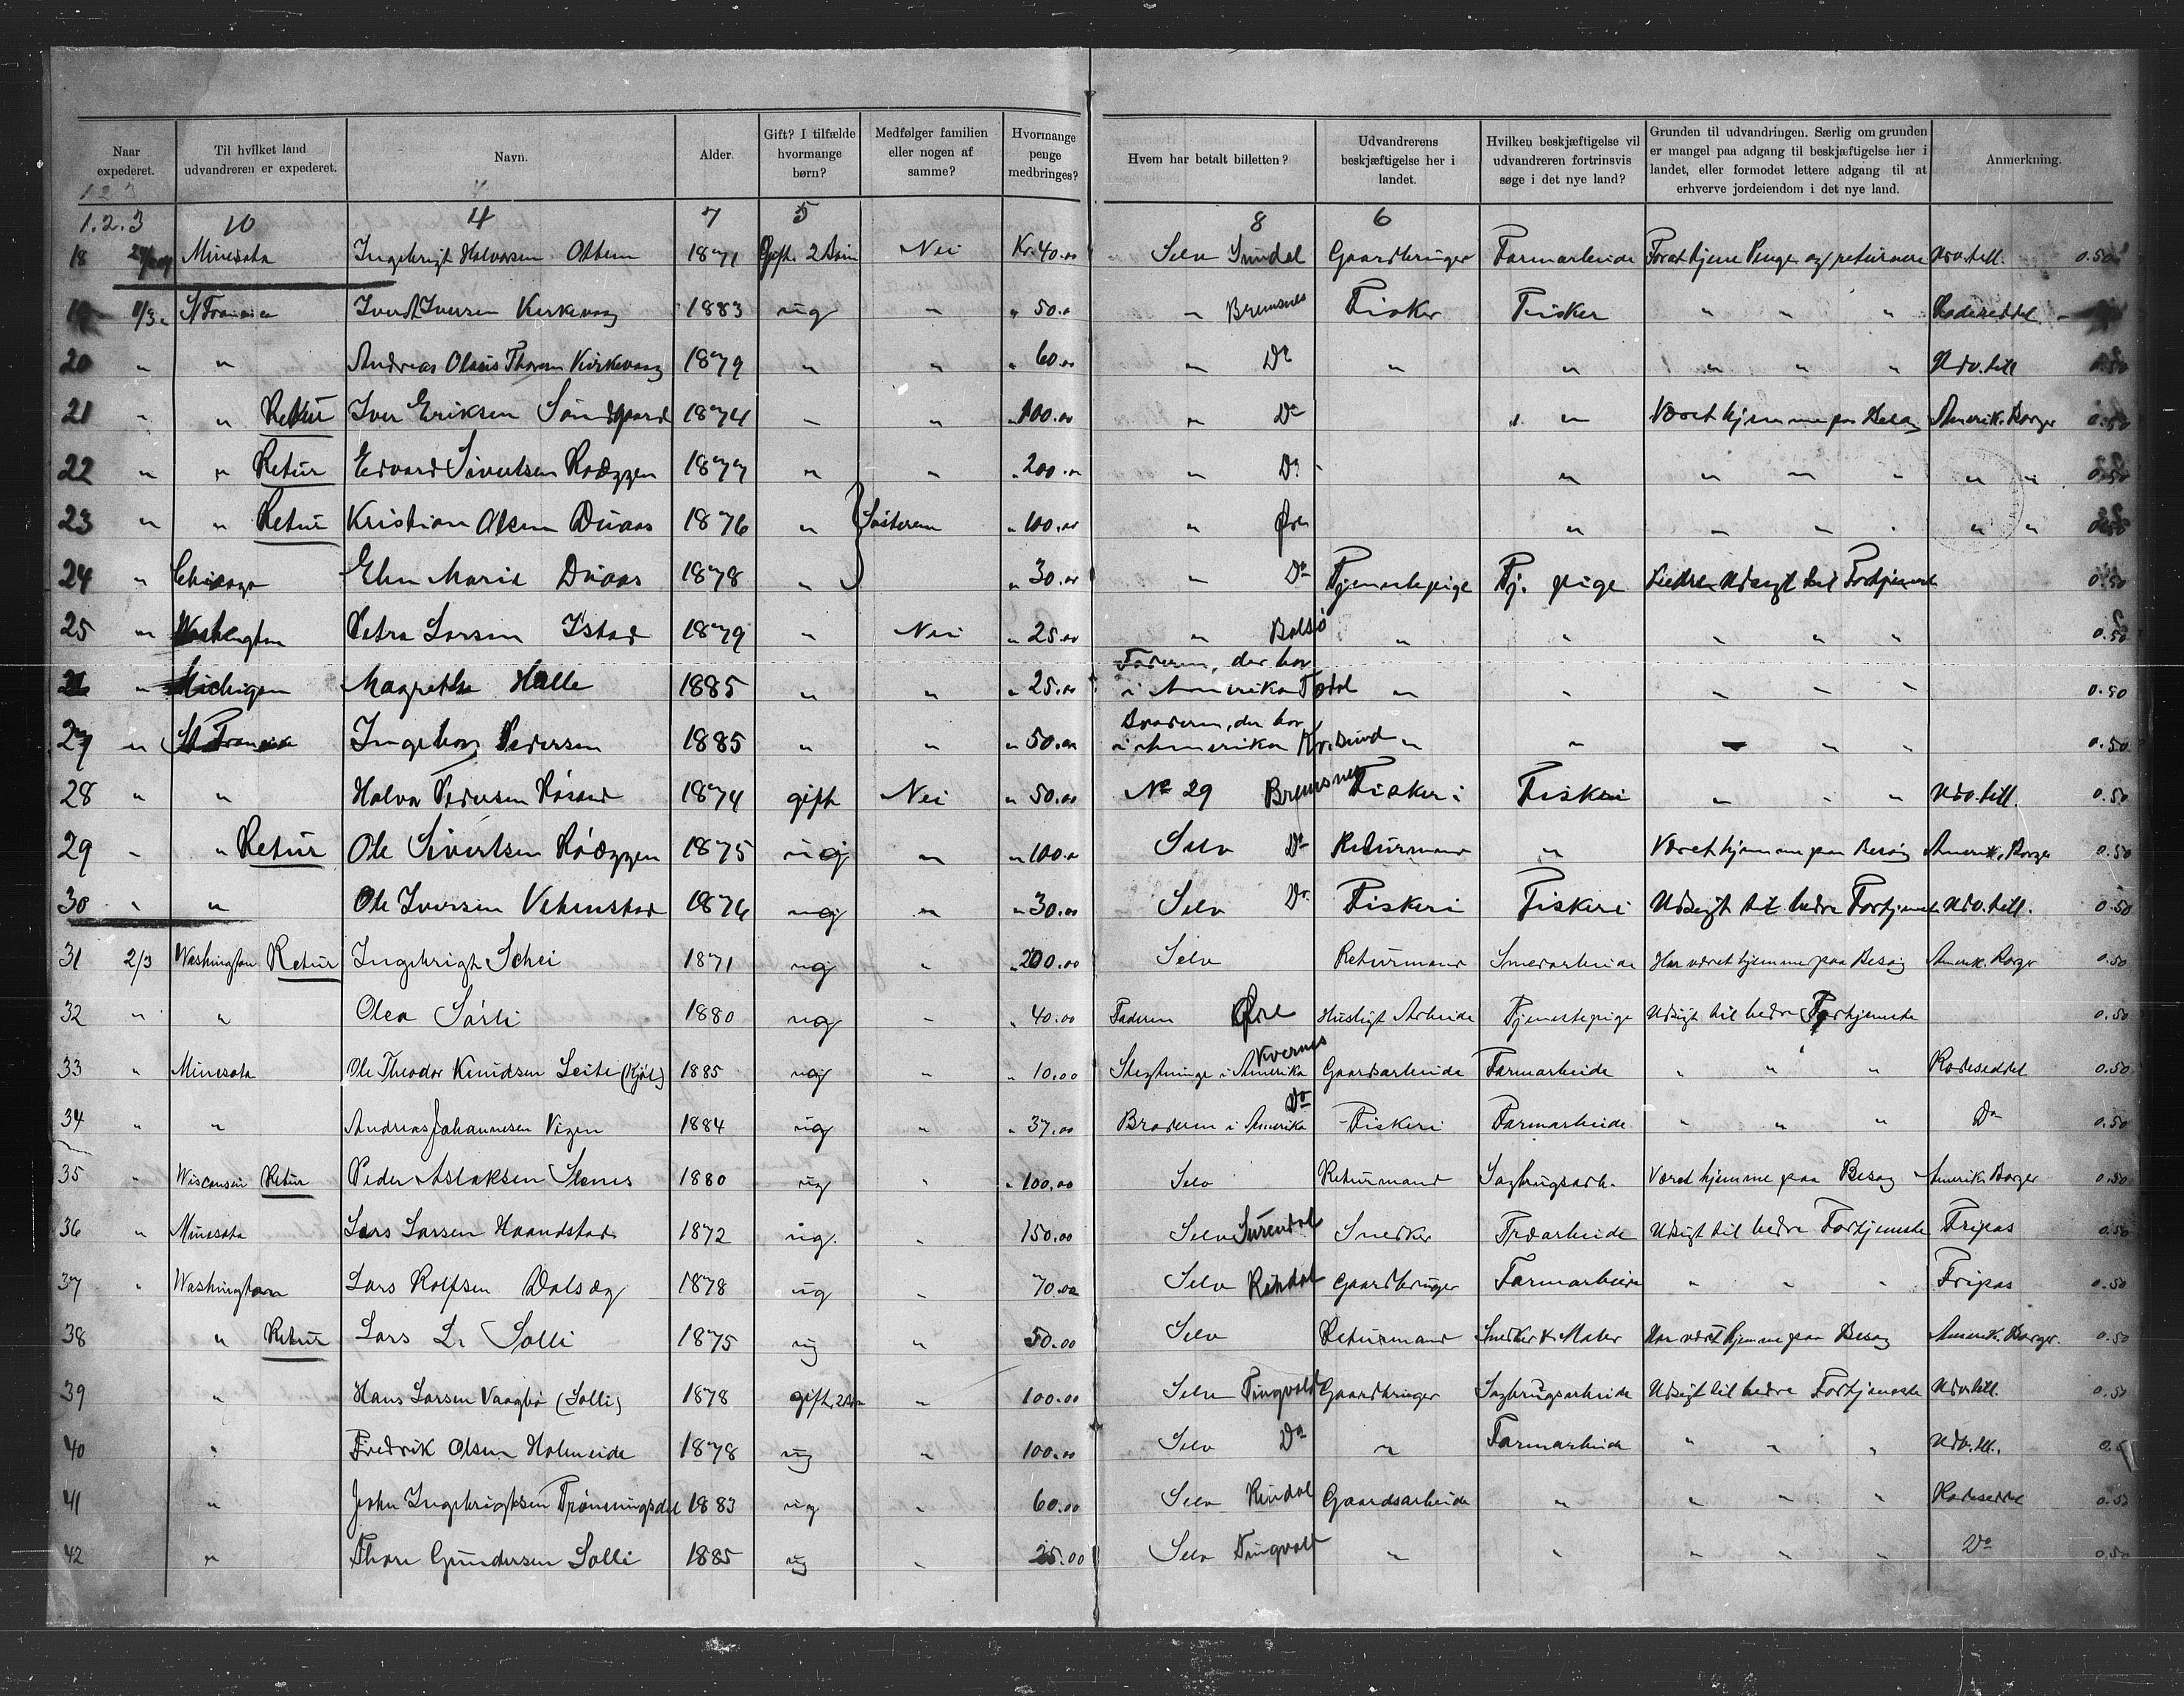 Naar expederet. | Til hvilket land udvandreren er expederet. | Navn. | Alder. | Gift? I tilfælde hvormange børn? | Medfølger familien eller nogen af samme? | Hvormange penge medbringes? | Hvem har betalt billetten? | Udvandrerens beskjæftigelse her i landet. | Hvilken beskjæftigelse vil udvandreren fortrinsvis søge i det nye land? | Grunden til udvandringen. Særlig om grunden er mangel paa adgang til beskjæftigelse her i landet, eller formodet lettere adgang til at erhverve jordeiendom i det nye land. | Anmerkning.
1 2 3
1. 2. 3 10 4 7 5 8 6
18 Minesota Ingebrigt Halvorsen Ottem 1871 Gift. 2 Nei Kr. 40.00 Selv Sundal Gaardbruger Farmarbeide Penge og returnere Udv. till. 0.50
19 1/3 Iver Iversen Kirkevaag 1883 ug " " 50.0 " Bremsnes Fisker Fisker " " " Rodeseddel
20 " " Andreas Olaus Thoresen Kirkevaag 1879 " " " 60.00 " Do " " " " " Udv. till 0.50
21 " " Retur Iver Eriksen Sandgaard 1874 " " " 100.00 " Do " Været hjemme paa Besøg Amerik. Borger 0.50
22 " " Retur Edvard Sivertsen Røeggen 1877 " " " 200.00 " Do " " " " " " 0.50
23 " " Retur Kristian Olsen Duaas 1876 " Søsteren " 100.00 " Øre " " " " " " 0.50
24 " Chicago Elen Marie Duaas 1878 " " 30.00 " Do Tjenestepige Tj. pige Bedre Udsigt til Fortjeneste 0.50
25 " Washington Petra Larsen Istad 1879 " Nei " 25.00 " Bolsø " " " " " 0.50
26 " Michigan Magrethe Halle 1885 " " " 25.00 Faderen, der bor i Amerika " " " " " 0.50
27 " St Fransisko Ingeborg Pedersen 1885 " " " 50.00 Broderen, der bor i Amerika Kr. sund " " " " " 0.50
28 " " Halvor Pedersen Røsand 1874 gift Nei " 50.00 No 29 Bremsnes Fiskeri Fiskeri " " " Udv. till. 0.50
29 " " Retur Ole Sivertsen Røeggen 1875 ug " " 100.0 Selv Do Returmand " Været hjemme paa Besøg Amerik. Borger 0.50
30 " " Ole Iversen Vebenstad 1876 ug " " 30.00 Selv Do Fiskeri Fiskeri Udsigt til bedre Fortjeneste Udv. till. 0.50
31 2/3 Washington Retur Ingebrigt Schei 1871 ug " " 200.00 Selv Returmand Smedarbeide Har været hjemme paa Besøg Amerik. Borger 0.50
32 " " Olea Sørli 1880 ug " " 40.00 Faderen Øre Husligt Arbeide Tjenestepige Udsigt til bedre Fortjeneste 0.50
33 " Minesota Ole Theodor Knudsen Leite (Kjøl) 1885 ug " " 10.00 Slegtninge i Amerika Kvernes Gaardsarbeide Farmarbeide " " " Rodeseddel 0.50
34 " " Andreas Johannesen Vigen 1884 ug " " 37.00 Broderen i Amerika Do Fiskeri Farmarbeide " " " Do 0.50
35 " Wisconsin Retur Peder Aslaksen Stenes 1880 ug " " 100.00 Selv Returmand Sagbrugsarb. Været hjemme paa Besøg Amerik. Borger 0.50
36 " Minesota Lars Larsen Haandstad 1872 ug. " 150.00 Selv Surendal Snedker Træarbeide Udsigt til bedre Fortjeneste Fripas 0.50
37 " Washington Lars Rolfsen Dalsæg 1878 ug " 70.00 Selv Rindal Gaardbruger Farmarbeide " " " Fripas 0.50
38 " Retur Lars L. Solli 1875 ug " 50.00 Selv Returmand Snedker & Maler Har været hjemme paa Besøg Amerik. Borger. 0.50
39 " Hans Larsen Vaagbø (Solli) 1878 gift, 2 " 100.00 Selv Tingvold Gaardbruger Sagbrugsarbeide Udsigt til bedre Fortjeneste Udv. till. 0.50
40 " Fredrik Olsen Holmeide 1878 ug " 100.00 Selv Do " Farmarbeide " " " Udv. till.
41 " John Ingebrigtsen Trønningsdal 1883 ug " 60.00 Selv Rindal Gaardsarbeide " " " " Rodeseddel 0.50
42 " Thore Gundersen Solli 1885 ug " 25.00 Selv Tingvold " " " " " Do 0.50